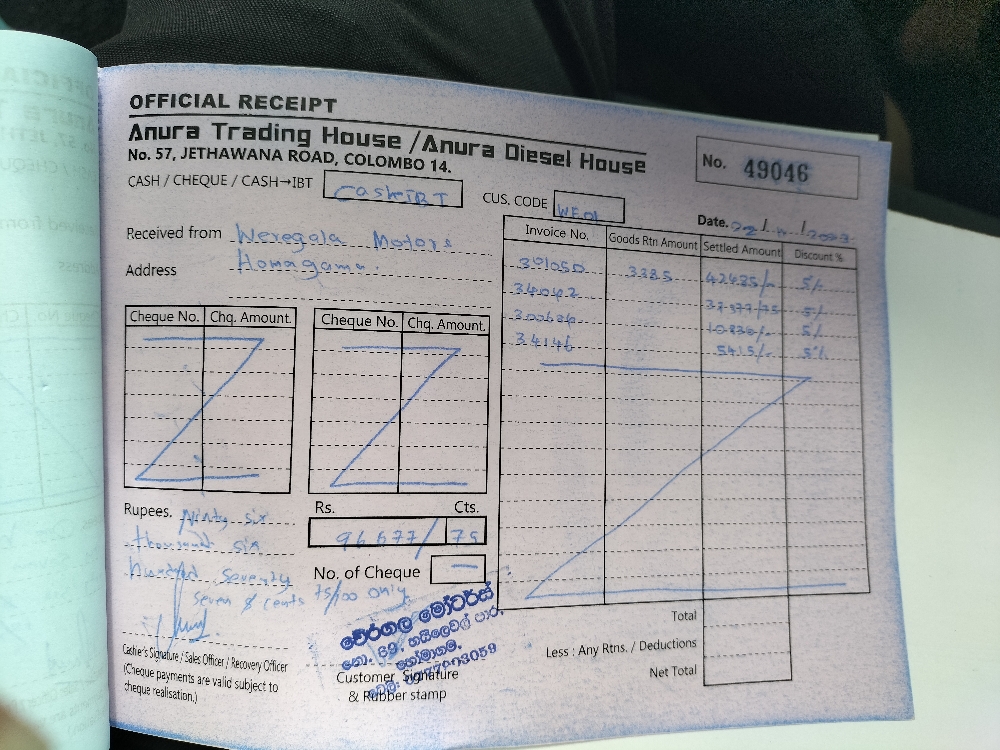 OFFICIAL RECEIPT
Anura Trading House / Anura Diesel House
No. 57, JETHAWANA ROAD, COLOMBO 14.
No. 49046
CASH / CHEQUE / CASH→IBT Cash IBT
CUS. CODE
Date. /2023
Received from Weregala Motors
Address Homagama.
Invoice No. Goods Rtn Amount Settled Amount Discount %
3385 42485/- 5%
5%
5%
34146 5415/- 5%
Cheque No. Chq. Amount. Cheque No. Chq. Amount.
Rupees. Ninty six
thousand six
hundred seventy
seven & cents 75/100 only
Rs. Cts.
96677/ 75
No. of Cheque —
Cashier's Signature / Sales Officer / Recovery Officer
(Cheque payments are valid subject to
cheque realisation.)
වේරගල මෝටර්ස්
නො. 69, හයිලෙවල් පාර,
හෝමාගම.
Customer Signature
& Rubber stamp
Total
Less : Any Rtns. / Deductions
Net Total